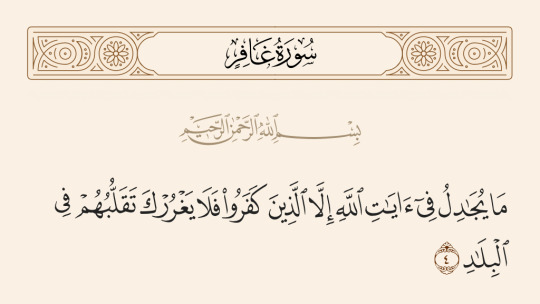 سُورَةُ غَافِرٍ
بِسْمِ ٱللَّهِ ٱلرَّحْمَٰنِ ٱلرَّحِيمِ
مَا يُجَٰدِلُ فِىٓ ءَايَٰتِ ٱللَّهِ إِلَّا ٱلَّذِينَ كَفَرُوا۟ فَلَا يَغْرُرْكَ تَقَلُّبُهُمْ فِى
ٱلْبِلَٰدِ ٤